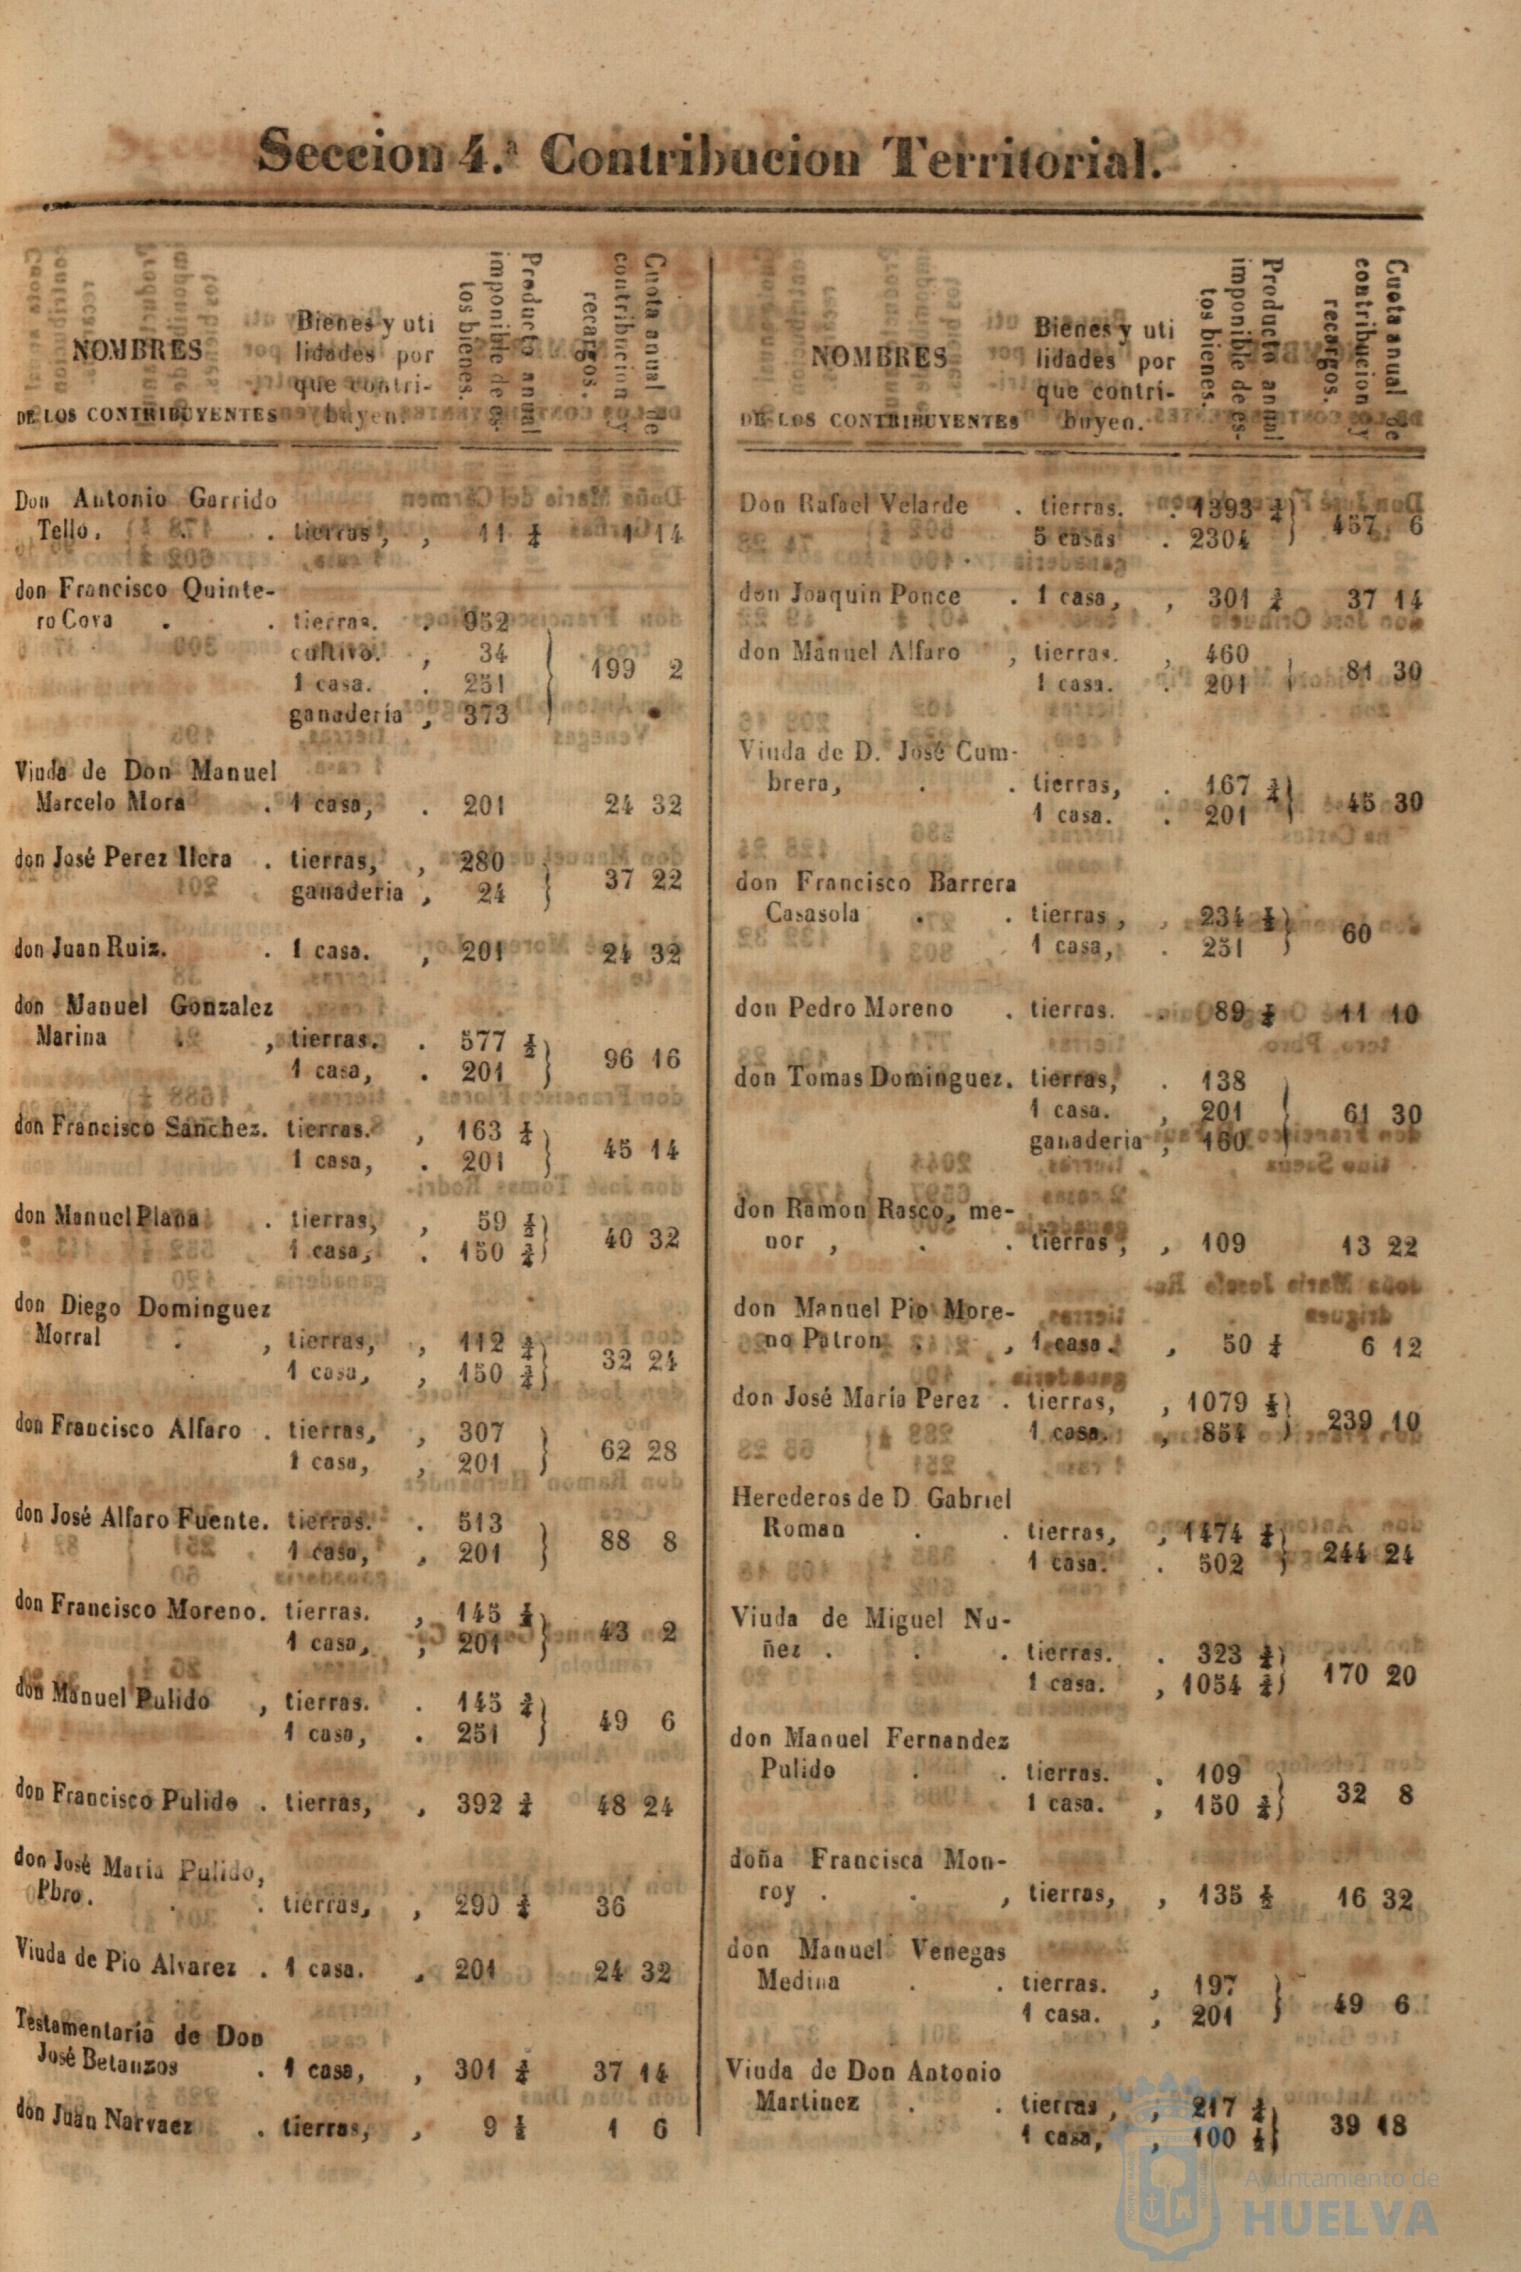 Seccion 4.ª Contribucion Territorial.
NOMBRES
DE LOS CONTRIBUYENTES
Bienes y uti
lidades por
que contri-
buyen.
Producto anual
imponible de es-
tos bienes.
Cuota anual de
contribucion y
recargos.
Don Antonio Garrido
Tello. . . tierras, , 11 1 14
don Francisco Quinte-
ro Cova . . tierras. . 952
cultivo. , 34
199 2
1 casa. . 251
ganadería , 373
Viuda de Don Manuel
Marcelo Mora . 1 casa, . 201 24 32
don José Perez Ilera . tierras, , 280
37 22
ganaderia , 24
don Juan Ruiz. . 1 casa. , 201 24 32
don Manuel Gonzalez
Marina . , tierras. . 577
96 16
1 casa, . 201
don Francisco Sanchez. tierras. , 163
45 14
1 casa, . 201
don Manuel Plana . tierras, , 59
40 32
1 casa, . 150
don Diego Dominguez
Morral . , tierras, , 112
32 24
1 casa, , 150
don Francisco Alfaro . tierras, , 307
62 28
1 casa, , 201
don José Alfaro Fuente. tierras. . 513
88 8
1 casa, , 201
don Francisco Moreno. tierras. , 145
43 2
1 casa, , 201
don Manuel Pulido , tierras. . 145
49 6
1 casa, . 251
don Francisco Pulido . tierras, , 392 48 24
don José Maria Pulido,
Pbro. . . tierras, , 290 36
Viuda de Pio Alvarez . 1 casa. , 201 24 32
Testamentaría de Don
José Betanzos . 1 casa, , 301 37 14
don Juan Narvaez . tierras, , 9 1 6
NOMBRES
DE LOS CONTRIBUYENTES
Bienes y uti
lidades por
que contri-
buyen.
Producto anual
imponible de es-
tos bienes.
Cuota anual de
contribucion y
recargos.
Don Rafael Velarde . tierras. . 1393
457 6
5 casas . 2304
don Joaquin Ponce . 1 casa, , 301 37 14
don Manuel Alfaro , tierras. , 460
81 30
1 casa. . 201
Viuda de D. José Cum-
brera, . . tierras, . 167
45 30
1 casa. . 201
don Francisco Barrera
Casasola . . tierras, , 234
60
1 casa, . 251
don Pedro Moreno . tierras. . 89 11 10
don Tomas Dominguez. tierras, . 138
1 casa. , 201
61 30
ganaderia , 160
don Ramon Rasco, me-
nor , . . tierras, , 109 13 22
don Manuel Pio More-
no Patron . , 1 casa. , 50 6 12
don José María Perez . tierras, , 1079
239 10
1 casa. , 854
Herederos de D. Gabriel
Roman . . tierras, , 1474
244 24
1 casa. . 502
Viuda de Miguel Nu-
ñez . . . tierras. . 323
170 20
1 casa. , 1054
don Manuel Fernandez
Pulido . . tierras. . 109
32 8
1 casa. , 150
doña Francisca Mon-
roy . . , tierras, , 135 16 32
don Manuel Venegas
Medina . . tierras. , 197
49 6
1 casa. , 201
Viuda de Don Antonio
Martinez . . tierras, , 217
39 18
1 casa, , 100
Ayuntamiento de
HUELVA